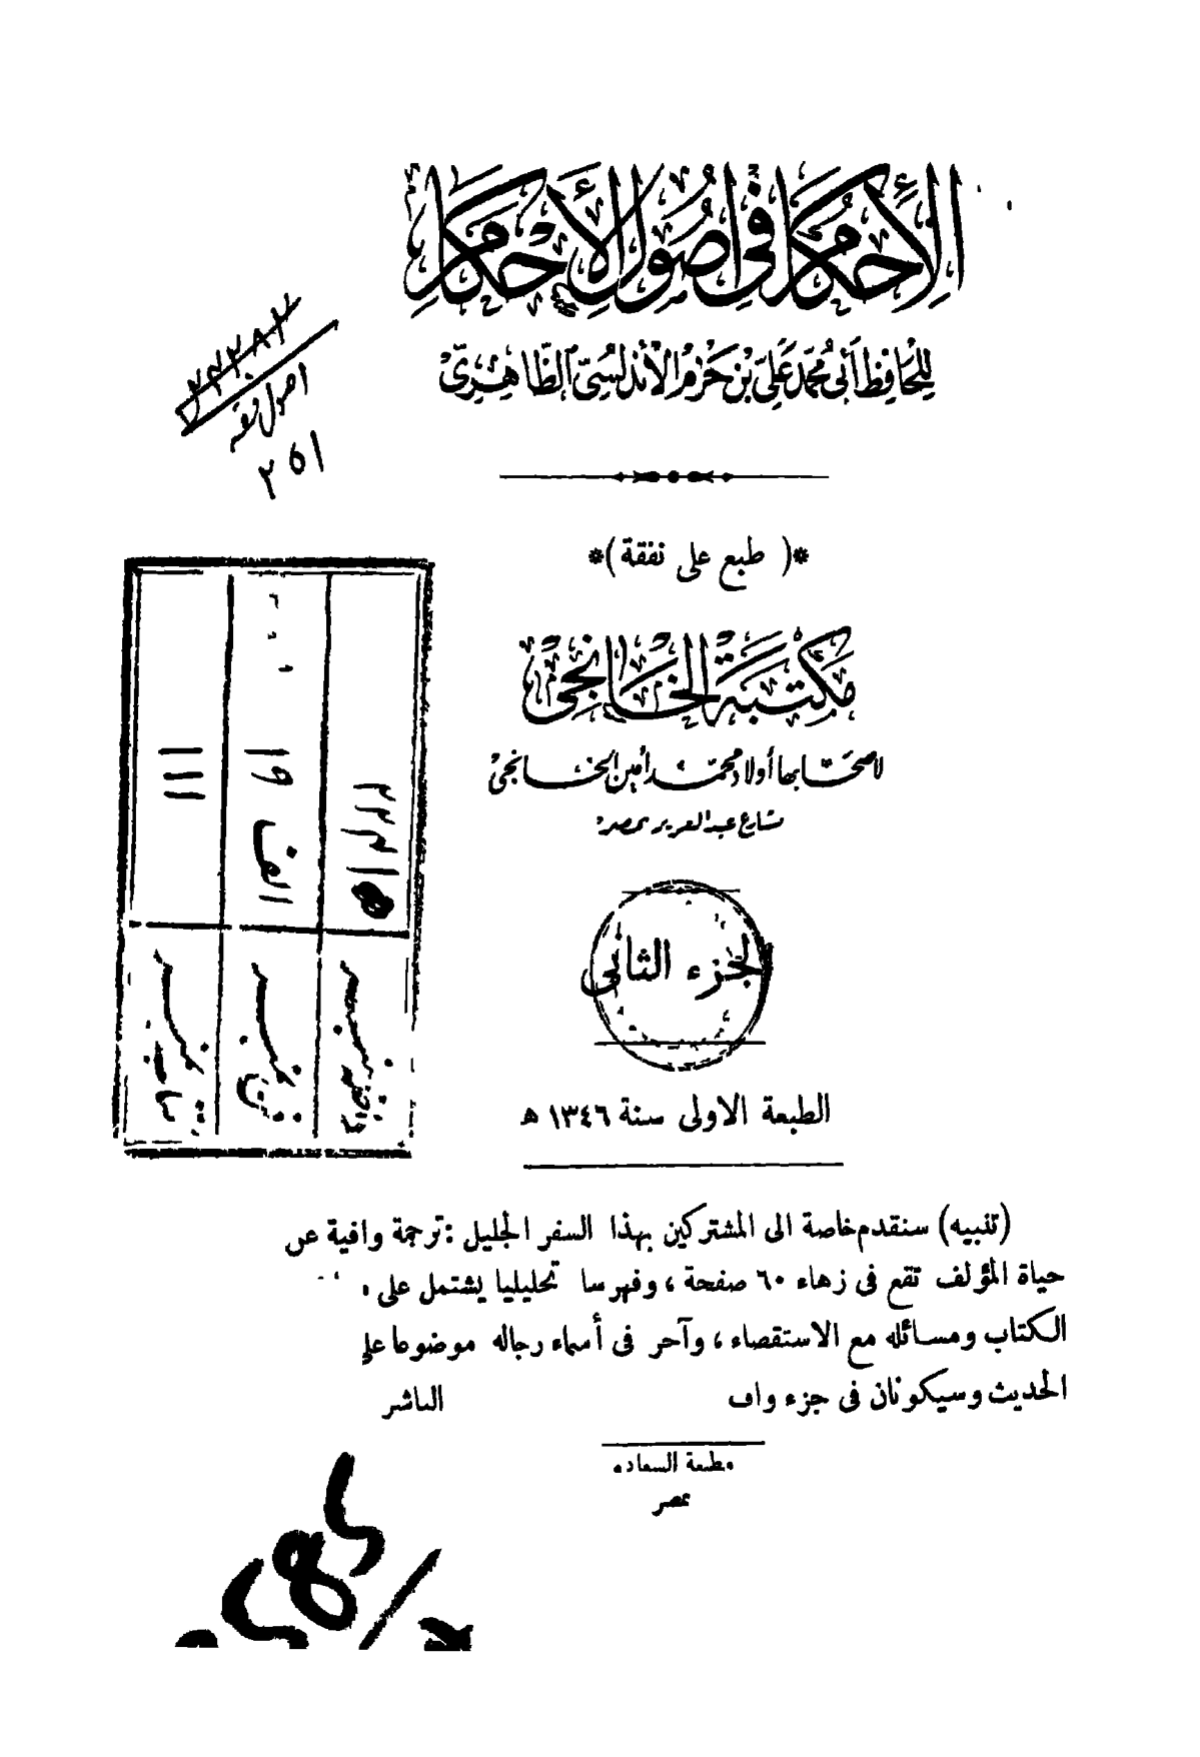 الإحكام في أصول الأحكام
للحافظ أبي محمد علي بن حزم الأندلسي الظاهري
اصول فقه
٢٥١
*( طبع على نفقة )*
مكتبة الخانجي
لأصحابها أولاد محمد أمين الخانجي
شارع عبد العزيز بمصر
الجزء الثانى
الطبعة الاولى سنة ١٣٤٦ ه
(تنبيه) سنقدم خاصة الى المشتركين بهذا السفر الجليل : ترجمة وافية عن
حياة المؤلف تقع فى زهاء ٦٠ صفحة ، وفهرسا تحليليا يشتمل على
الكتاب ومسائله مع الاستقصاء ، وآخر فى أسماء رجاله موضوعا على
الحديث وسيكونان فى جزء واف
الناشر
مطبعة السعادة
بمصر